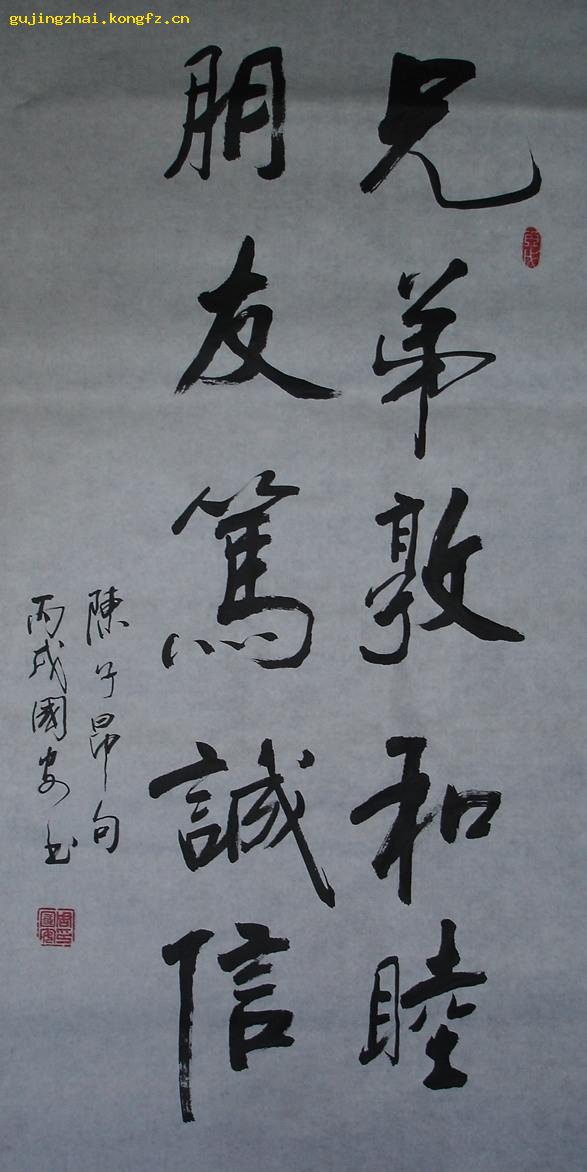 gujingzhai.kongfz.cn
兄弟敦和睦
朋友篤誠信
陳子昂句
丙戌國安书